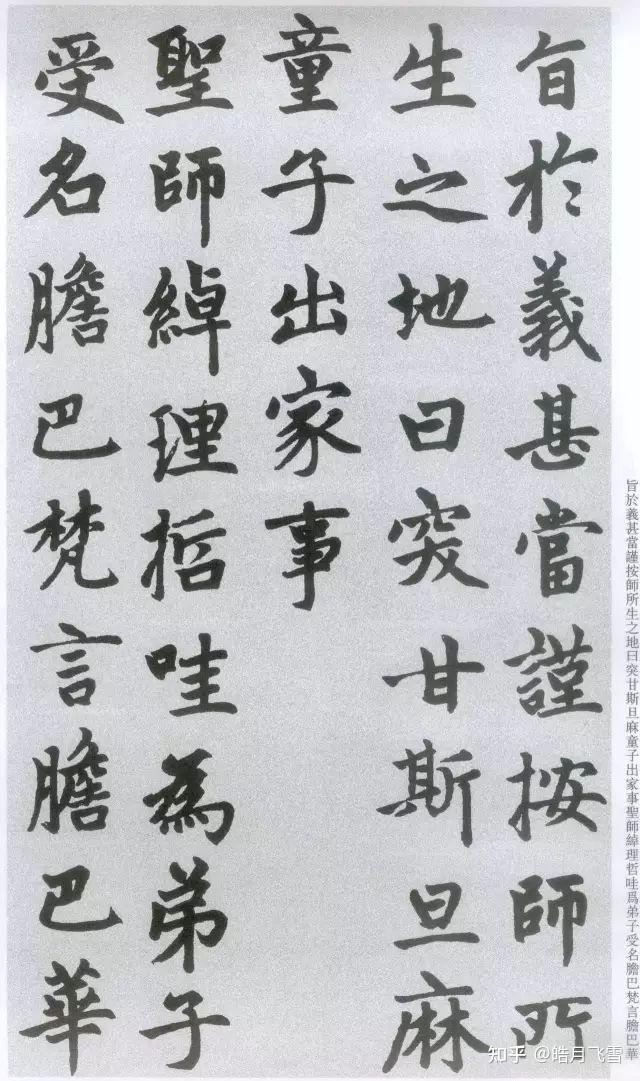 旨於義甚當謹按師所
生之地曰突甘斯旦麻
童子出家事
聖師綽理哲哇為弟子
受名膽巴梵言膽巴華
旨於義甚當謹按師所生之地曰突甘斯旦麻童子出家事聖師綽理哲哇爲弟子受名膽巴梵言膽巴華
知乎 @皓月飞雪